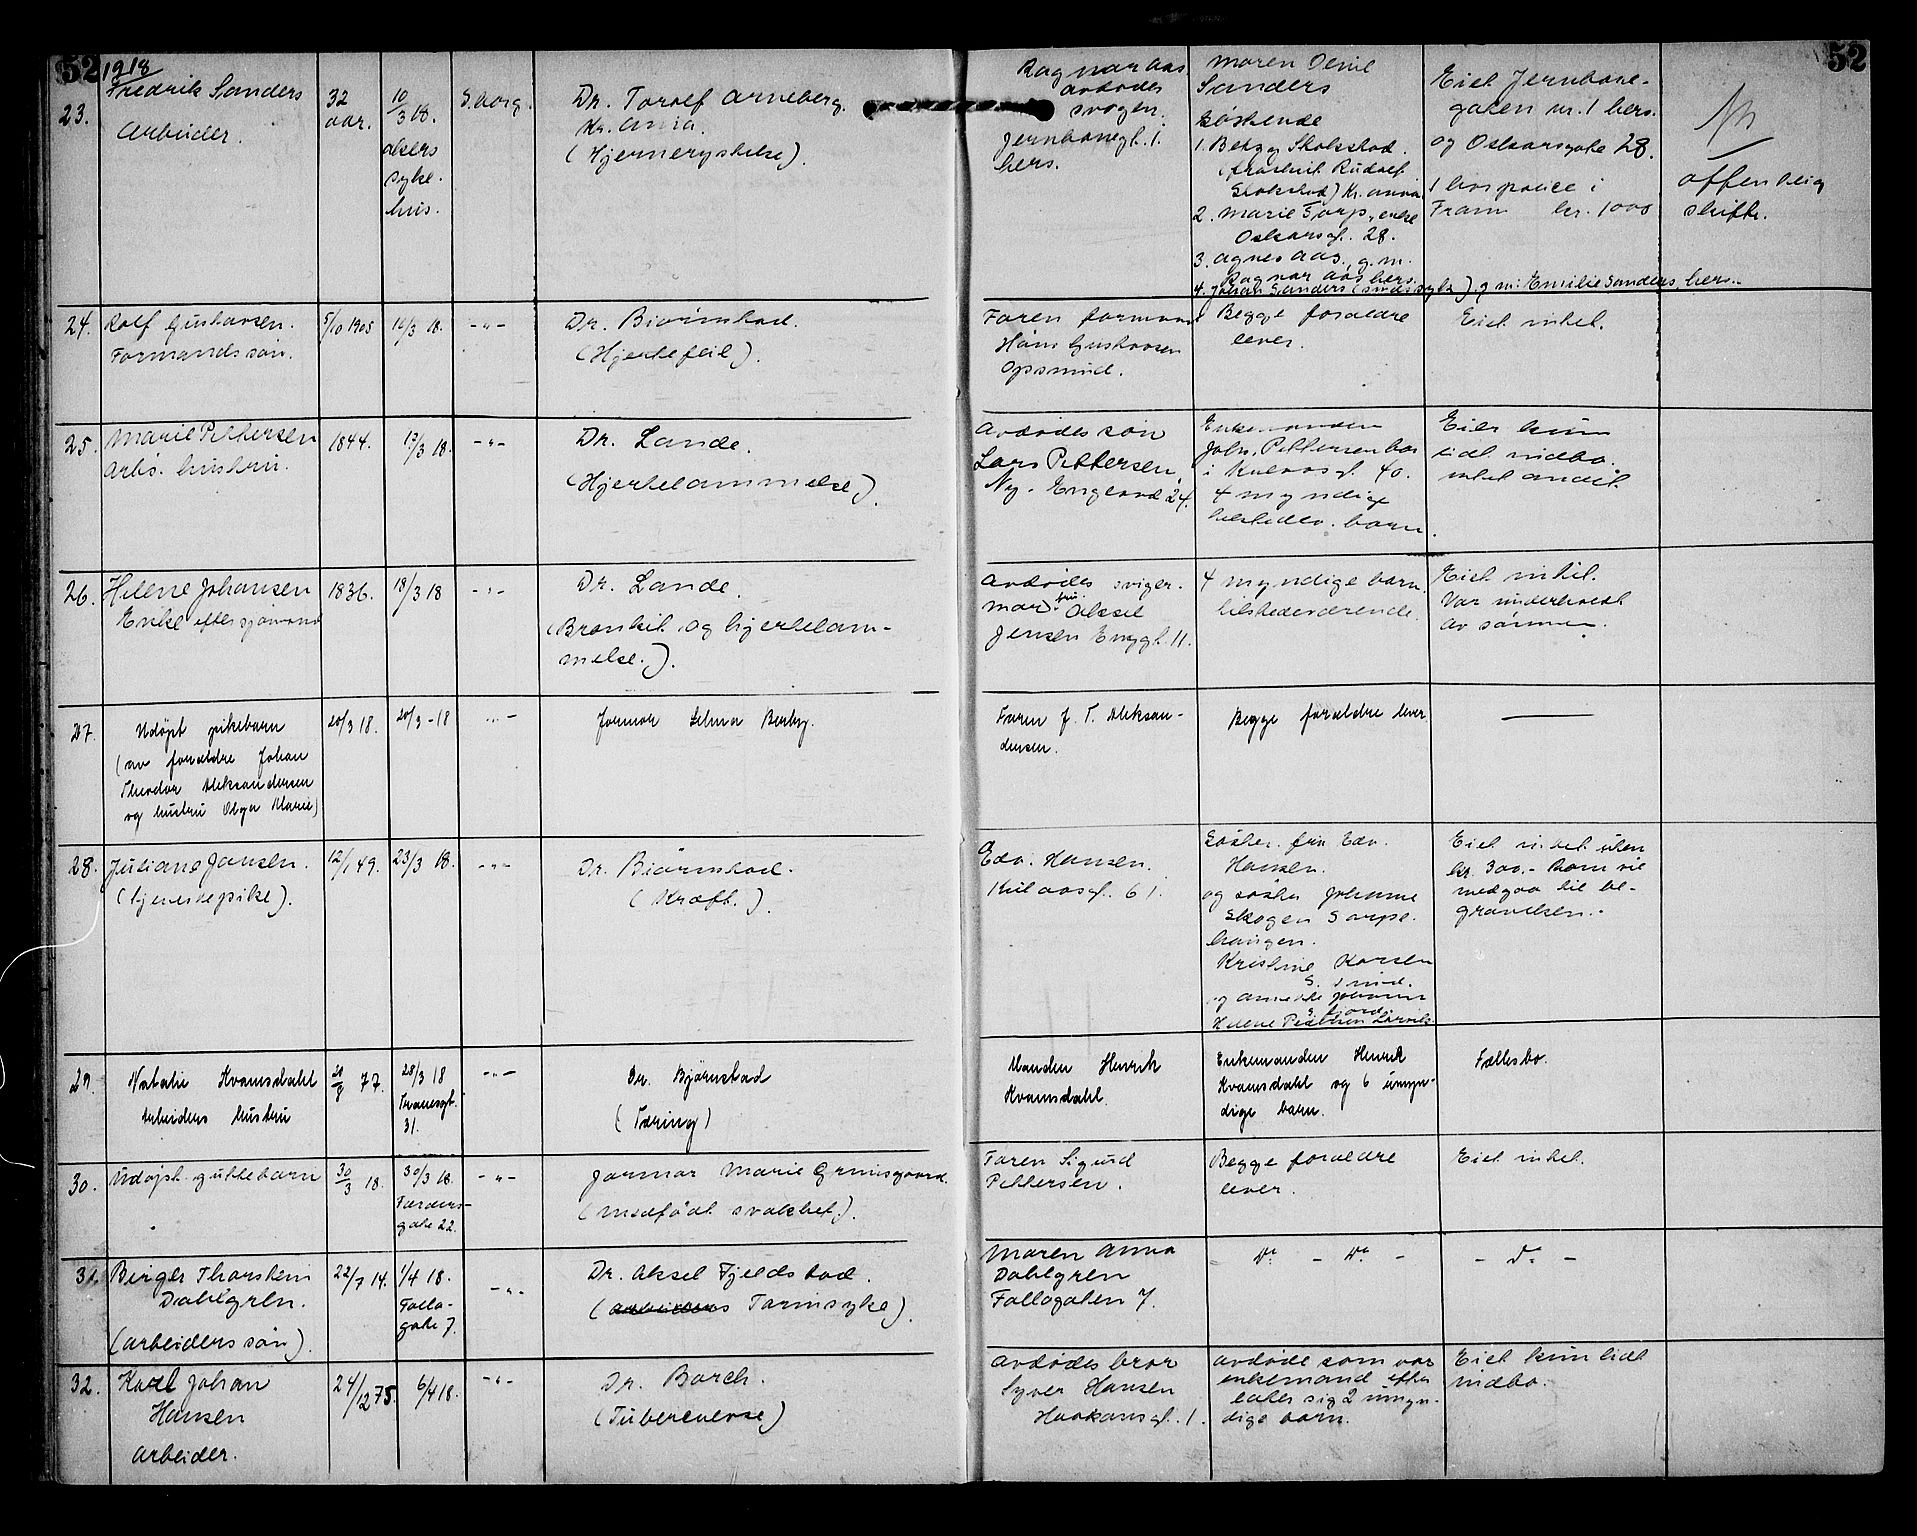 52
1918
52
23.
Fredrik Sanders
Arbeider.
32
aar.
10/3 18.
Akers
syke-
hus.
S.borg.
Dr. Toralf Arneberg.
Kr.ania.
(Hjernerystelse).
Ragnar Aas
avdødes
svoger.
Jernbanegt. 1.
hers.
Moren
Sanders
Søskende
1. Betzy Skolstad.
(Fredrik Rudolf
Skolstad) Kr.ania
2. Marie Torp, enke
Oskarsgt. 28.
3. Agnes Aas, g.m.
Ragnar Aas hers.
4. Johan Sanders (sindssyk) g.m. Emilie Sanders, hers.
Eiet Jernbane-
gaten nr. 1 hers.
og Oskarsgate 28.
1 livspolice i
Fram kr. 1000
offentlig
skifte.
24.
Rolf Gustavsen.
Formands søn.
5/10 1905
16/3 18.
- " -
Dr. Biørnstad.
(Hjertefeil).
Faren formand
Hans Gustavsen
Opsund.
Begge forældre
lever.
Eiet intet.
25.
Marie Pettersen
Arbs. hustru.
1844.
17/3 18.
- " -
Dr. Lande.
(Hjertelammelse)
Avdødes søn
Lars Pettersen,
Ny-England 24.
Enkemanden
Johs. Pettersen bor
i Kulaasgt. 40.
4 myndige
tilstedev. barn.
Eier kun
lidt indbo.
intet andet.
26.
Helene Johansen
Enke efter sjømand
1836.
18/3 18
- " -
Dr. Lande.
(Bronkit og hjertelam-
melse.).
Avdødes sviger-
mor fru Aksel
Jensen Enggt. 11.
4 myndige barn
tilstedeværende.
Eiet intet.
Var underholdt
av sønnen.
27.
Udøpt pikebarn
(av forældre Johan
Theodor Aleksandersen
og hustru Olga Marie)
20/3 18.
20/3 -18
- " -
Jormor Selma Berby.
Faren J. T. Aleksan-
dersen.
Begge forældre lever.
28.
Juliane Jansen.
(tjenestepike).
12/1 49.
23/3 18.
- " -
Dr. Biørnstad.
(Kræft.).
Edv. Hansen.
Kulaasgt. 61.
Søster fru Edv.
Hansen.
og søster Johanne
Skogen Sarpe-
hangen.
Kristine Karlsen
og Annette Johansen
Helene Pedersen Larvik
Eiet intet uten
kr. 300.- som vil
medgaa til be-
gravelsen.
29.
Natalie Kvamsdahl
Arbeiders hustru
77.
28/3 18
Tranesgt.
31.
- " -
Dr. Bjørnstad
(Tæring)
Manden Henrik
Kvamsdahl.
Enkemanden Henrik
Kvamsdahl og 6 umyn-
dige barn.
Fællesbo.
30.
Udøpt guttebarn
30/3 18.
30/3 18.
Færders-
gate 22.
- " -
Jormor Marie Grimsgaard.
(medfødt svakhet).
Faren Sigurd
Pettersen.
Begge forældre
lever.
Eiet intet.
31.
Birger Thorstein
Dahlgren.
(arbeiders søn).
22/7 14.
1/4 18.
Follo-
gate 7.
- " -
Dr. Aksel Fjeldstad.
(arbeiders Tarmsyke).
Moren Anna
Dahlgren
Follogaten 7.
- Do - Do -
- Do -
32.
Karl Johan
Hansen
Arbeider.
24/12 75.
6/4 18.
- " -
Dr. Borch.
(Tuberculose)
Avdødes bror
Syver Hansen
Haakonsgt. 1.
Avdøde som var
enkemand efter-
later sig 2 umyn-
dige barn.
Eiet kun lidt
indbo.